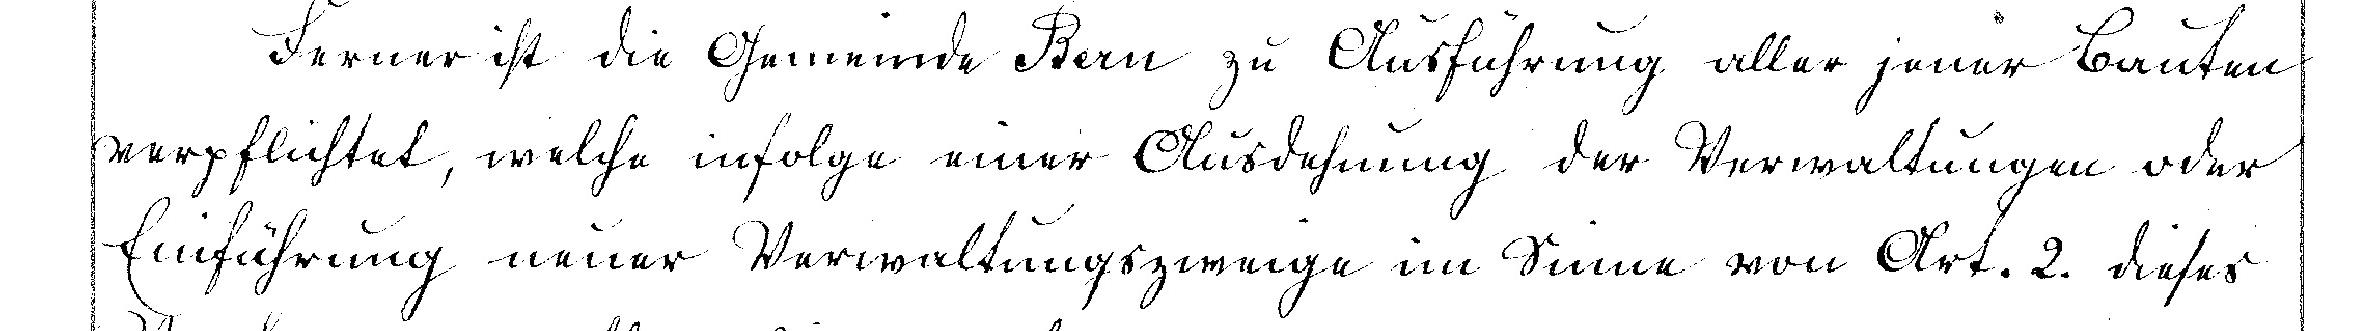 Ferner ist die Gemeinde Bern zu Ausführung aller jener Bauten
verpflichtet, welche infolge einer Ausdehnung der Verwaltungen oder
Einführung neuer Verwaltungszweige im Sinne von Art. 2. dieses